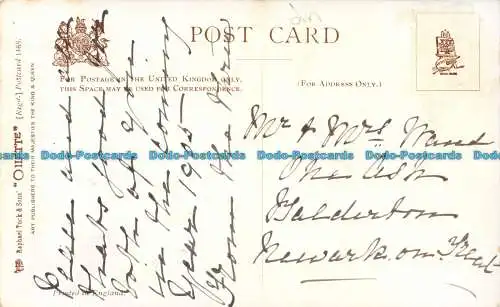 POST CARD
FOR POSTAGE IN THE UNITED KINGDOM ONLY,
THIS SPACE MAY BE USED FOR CORRESPONDENCE.
(FOR ADDRESS ONLY.)
Raphael Tuck & Sons' "OILETTE" [Regd.] Postcard 1465.
ART PUBLISHERS TO THEIR MAJESTIES THE KING & QUEEN
Printed in England.
and
thats good
both of you
in the coming
Year 1905
From the
Mr & Mrs Wand
The Ash
Balderton
Newark on Trent